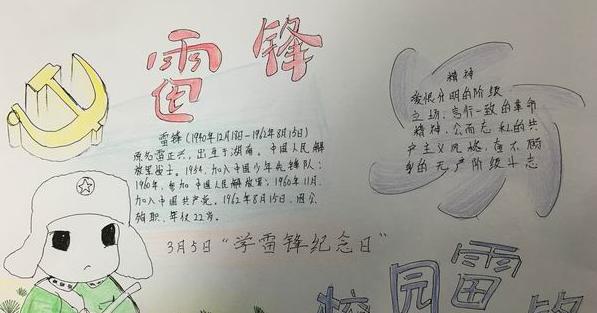 雷锋
雷锋(1940年12月18日-1962年8月15日)
原名雷正兴,出生于湖南,中国人民解
放军战士。1954,加入中国少年先锋队;
1960年,参加中国人民解放军;1960年11月,
加入中国共产党。1962年8月15日,因公
殉职,年仅22岁。
3月5日“学雷锋纪念日”
精神
爱恨分明的阶级
立场、言行一致的革命
精神、公而无私的共
产主义风格、奋不顾
身的无产阶级斗志
校园雷锋